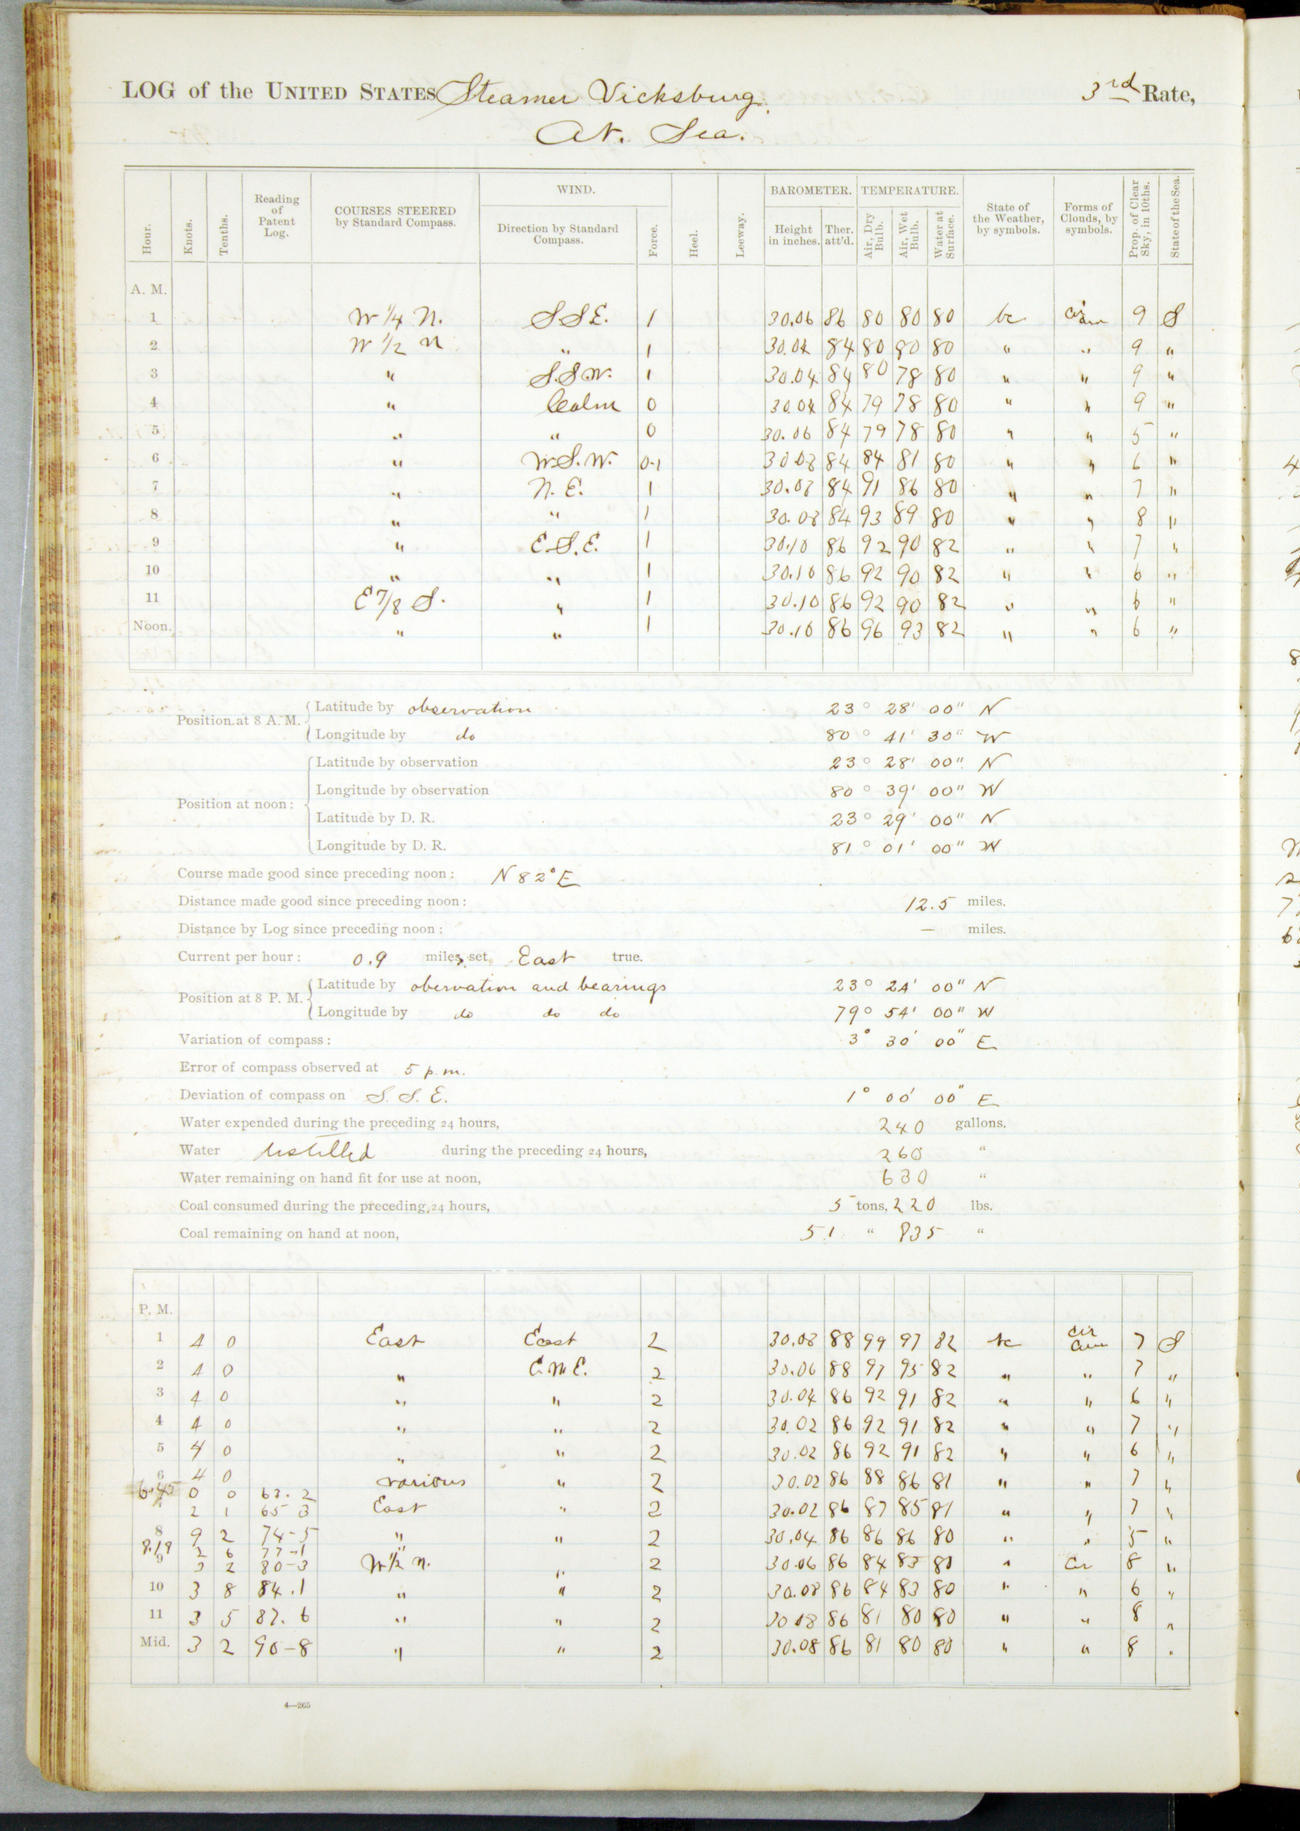 LOG of the UNITED STATES Steamer Vicksburg. 3rd Rate,
At Sea.
Hour. Knots. Tenths. Reading of Patent Log. COURSES STEERED by Standard Compass. WIND. Direction by Standard Compass. Force. Heel. Leeway. BAROMETER. Height in inches. Ther. att'd. TEMPERATURE. Air, Dry Bulb. Air, Wet Bulb. Water at Surface. State of the Weather, by symbols. Forms of Clouds, by symbols. Prop. of Clear Sky, in 10ths. State of the Sea.
A. M.
1 W 1/4 N. S S E. 1 30.06 86 80 80 80 bc cir cum 9 S
2 W 1/2 N " 1 30.04 84 80 80 80 " " 9 "
3 " S.S.W. 1 30.04 84 80 78 80 " " 9 "
4 " Calm 0 30.04 84 79 78 80 " " 9 "
5 " " 0 30.06 84 79 78 80 " " 5 "
6 " W.S.W. 0-1 30.08 84 84 81 80 " " 6 "
7 " N. E. 1 30.08 84 91 86 80 " " 7 "
8 " " 1 30.08 84 93 89 80 " " 8 "
9 " E.S.E. 1 30.10 86 92 90 82 " " 7 "
10 " " 1 30.10 86 92 90 82 " " 6 "
11 E 7/8 S. " 1 30.10 86 92 90 82 " " 6 "
Noon. " " 1 30.10 86 96 93 82 " " 6 "
Position at 8 A. M. Latitude by observation 23° 28' 00" N
Longitude by do 80° 41' 30" W
Position at noon: Latitude by observation 23° 28' 00" N
Longitude by observation 80° 39' 00" W
Latitude by D. R. 23° 29' 00" N
Longitude by D. R. 81° 01' 00" W
Course made good since preceding noon: N 82° E
Distance made good since preceding noon: 12.5 miles.
Distance by Log since preceding noon: — miles.
Current per hour: 0.9 miles, set, East true.
Position at 8 P. M. Latitude by obervation and bearings 23° 24' 00" N
Longitude by do do do 79° 54' 00" W
Variation of compass: 3° 30' 00" E
Error of compass observed at 5 p.m.
Deviation of compass on S. S. E. 1° 00' 00" E
Water expended during the preceding 24 hours, 240 gallons.
Water distilled during the preceding 24 hours, 260 "
Water remaining on hand fit for use at noon, 630 "
Coal consumed during the preceding, 24 hours, 5 tons, 220 lbs.
Coal remaining on hand at noon, 51 " 835 "
P. M.
1 4 0 East East 2 30.08 88 99 97 82 bc cir cum 7 S
2 4 0 " E.N.E. 2 30.06 88 97 95 82 " " 7 "
3 4 0 " " 2 30.04 86 92 91 82 " " 6 "
4 4 0 " " 2 30.02 86 92 91 82 " " 7 "
5 4 0 " " 2 30.02 86 92 91 82 " " 6 "
6 4 0 various " 2 30.02 86 88 86 81 " " 7 "
6.45 0 0 63.2
2 1 65-3 East " 2 30.02 86 87 85 81 " " 7 "
8 9 2 74-5 " " 2 30.04 86 86 86 80 " " 5 "
8.19 2 6 77-1 "
9 3 2 80-3 W 1/2 N. " 2 30.06 86 84 83 80 " Cir 8 "
10 3 8 84.1 " " 2 30.08 86 84 83 80 " " 6 "
11 3 5 87.6 " " 2 30.08 86 81 80 80 " " 8 "
Mid. 3 2 90-8 " " 2 30.08 86 81 80 80 " " 8 "
4—265